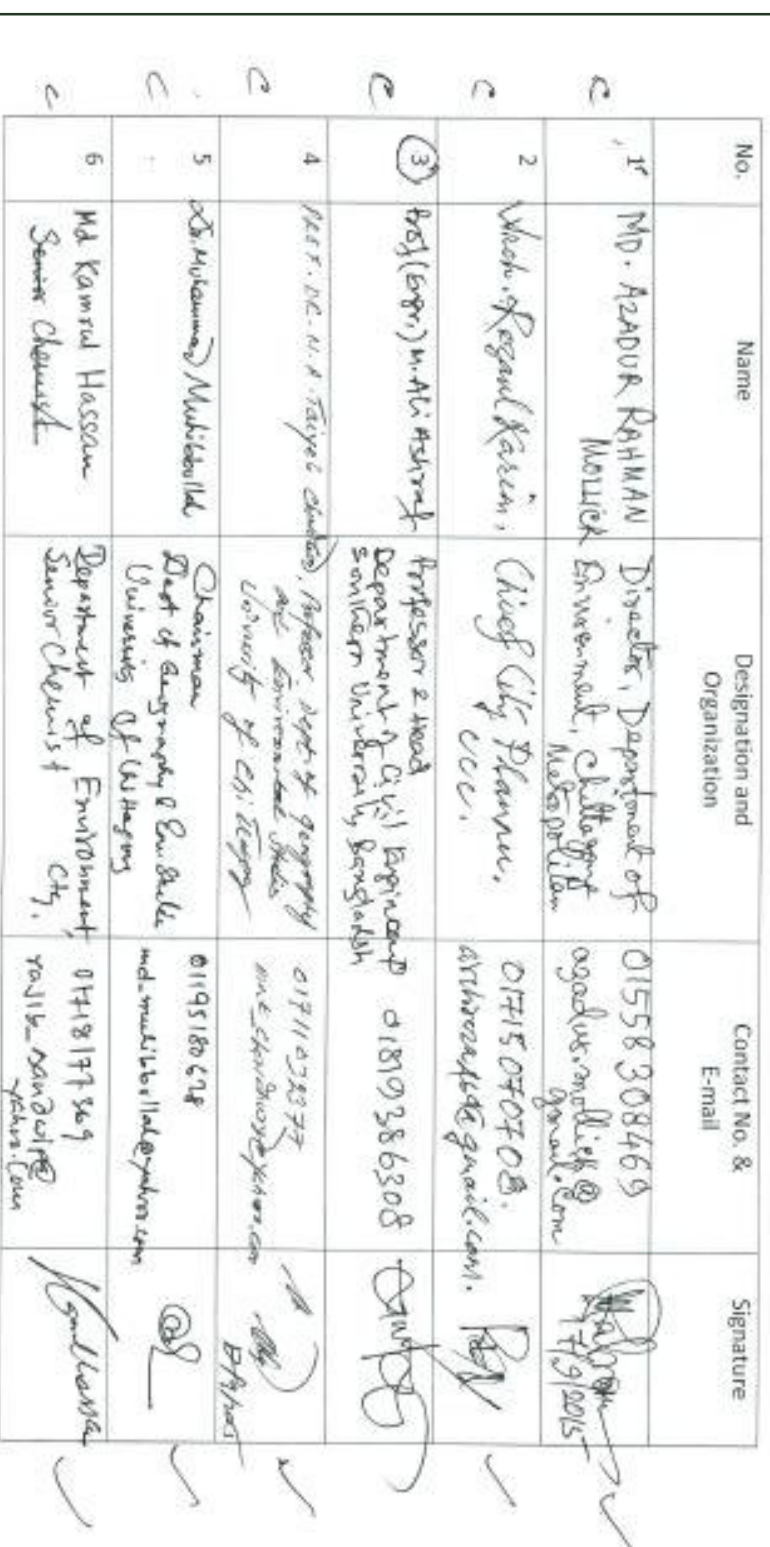 No. Name Designation and Organization Contact No. & E-mail Signature
1 MD. AZADUR RAHMAN MOLLICK Director, Department of Environment, Chittagong Metropolitan 01558308469 azadur.mollick@gmail.com 17/9/2015
2 Rezaul Karim, Chief City Planner, CCC. 01715070708.
3 Prof (Engr.) M. Ali Ashraf Professor & Head Department of Civil Engineering Southern University, Bangladesh 01819386308
4 PROF. DR. N. A. Taiyeb Professor, Dept of Geography and Environmental Studies University of Chittagong 01711032377
5 Dr. Muhammad Muhibbullah Chairman Dept of Geography & Env. Studies University of Chittagong 01195180678 md_muhibbullah@yahoo.com
6 Md Kamrul Hassan Senior Chemist Department of Environment, Ctg. Senior Chemist 01718177369 rajib_sandwip@yahoo.com